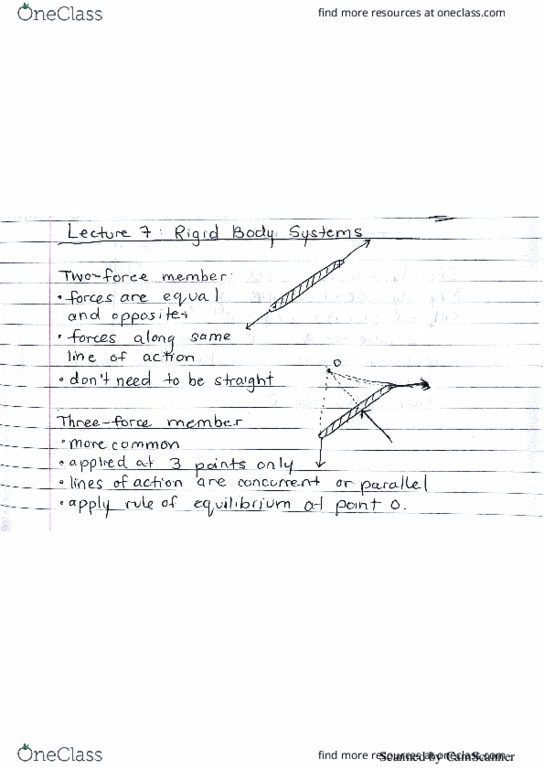 OneClass
find more resources at oneclass.com
Lecture 7: Rigid Body Systems
Two-force member:
• forces are equal
and opposites
• forces along same
line of action
• don't need to be straight
O
Three-force member
• more common
• applied at 3 points only
• lines of action are concurrent or parallel
• apply rule of equilibrium at point O.
OneClass
find more resources at oneclass.com
Scanned by CamScanner